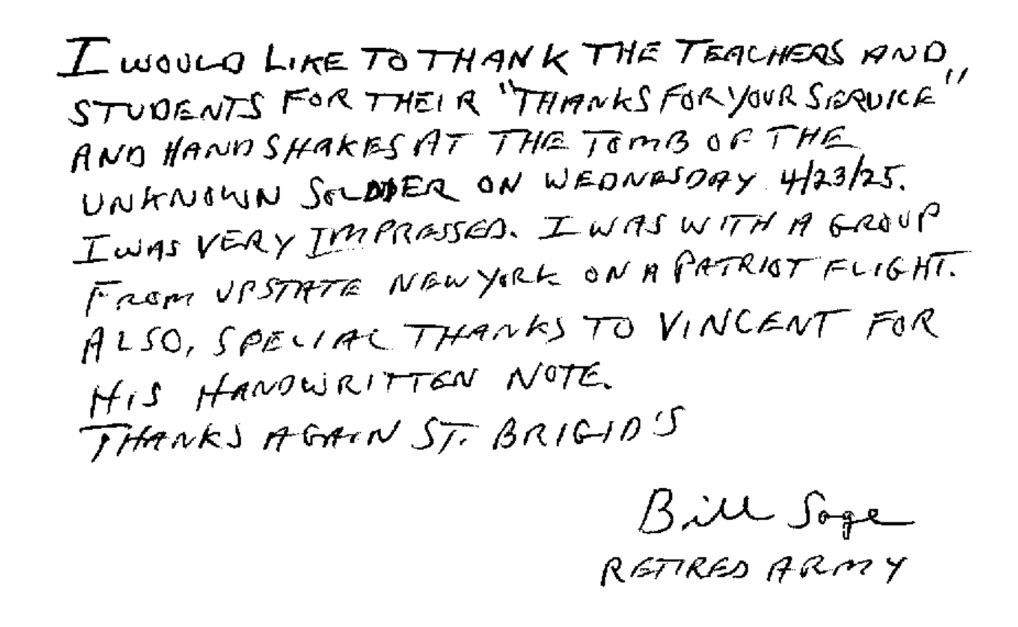 I WOULD LIKE TO THANK THE TEACHERS AND
STUDENTS FOR THEIR "THANKS FOR YOUR SERVICE"
AND HANDSHAKES AT THE TOMB OF THE
UNKNOWN SOLDIER ON WEDNESDAY 4/23/25.
I WAS VERY IMPRESSED. I WAS WITH A GROUP
FROM UPSTATE NEW YORK ON A PATRIOT FLIGHT.
ALSO, SPECIAL THANKS TO VINCENT FOR
HIS HANDWRITTEN NOTE.
THANKS AGAIN ST. BRIGID'S
Bill Sage
RETIRED ARMY